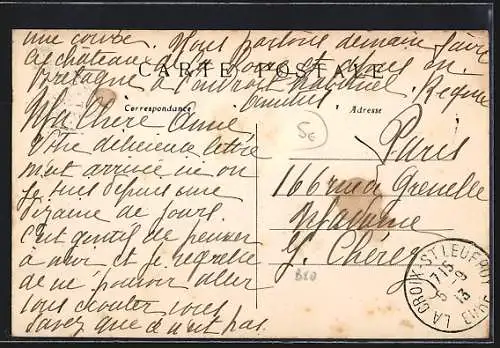 une corvée. Nous partons demain faire
les châteaux de la Loire et nous en
Bretagne à l'endroit habituel
CARTE POSTALE
Correspondance
Adresse
Ma chère Amie,
Votre délicieuse lettre
m'est arrivée ici où
je suis depuis une
dizaine de jours.
c'est gentil de penser
à moi et je regrette
de ne pouvoir aller
vous écouter vous
savez que ce n'est pas
5€
Paris
166 rue de Grenelle
Madame
Y. Chérez
880
LA CROIX-ST LEUFROY
17 15
9-9
13
EURE